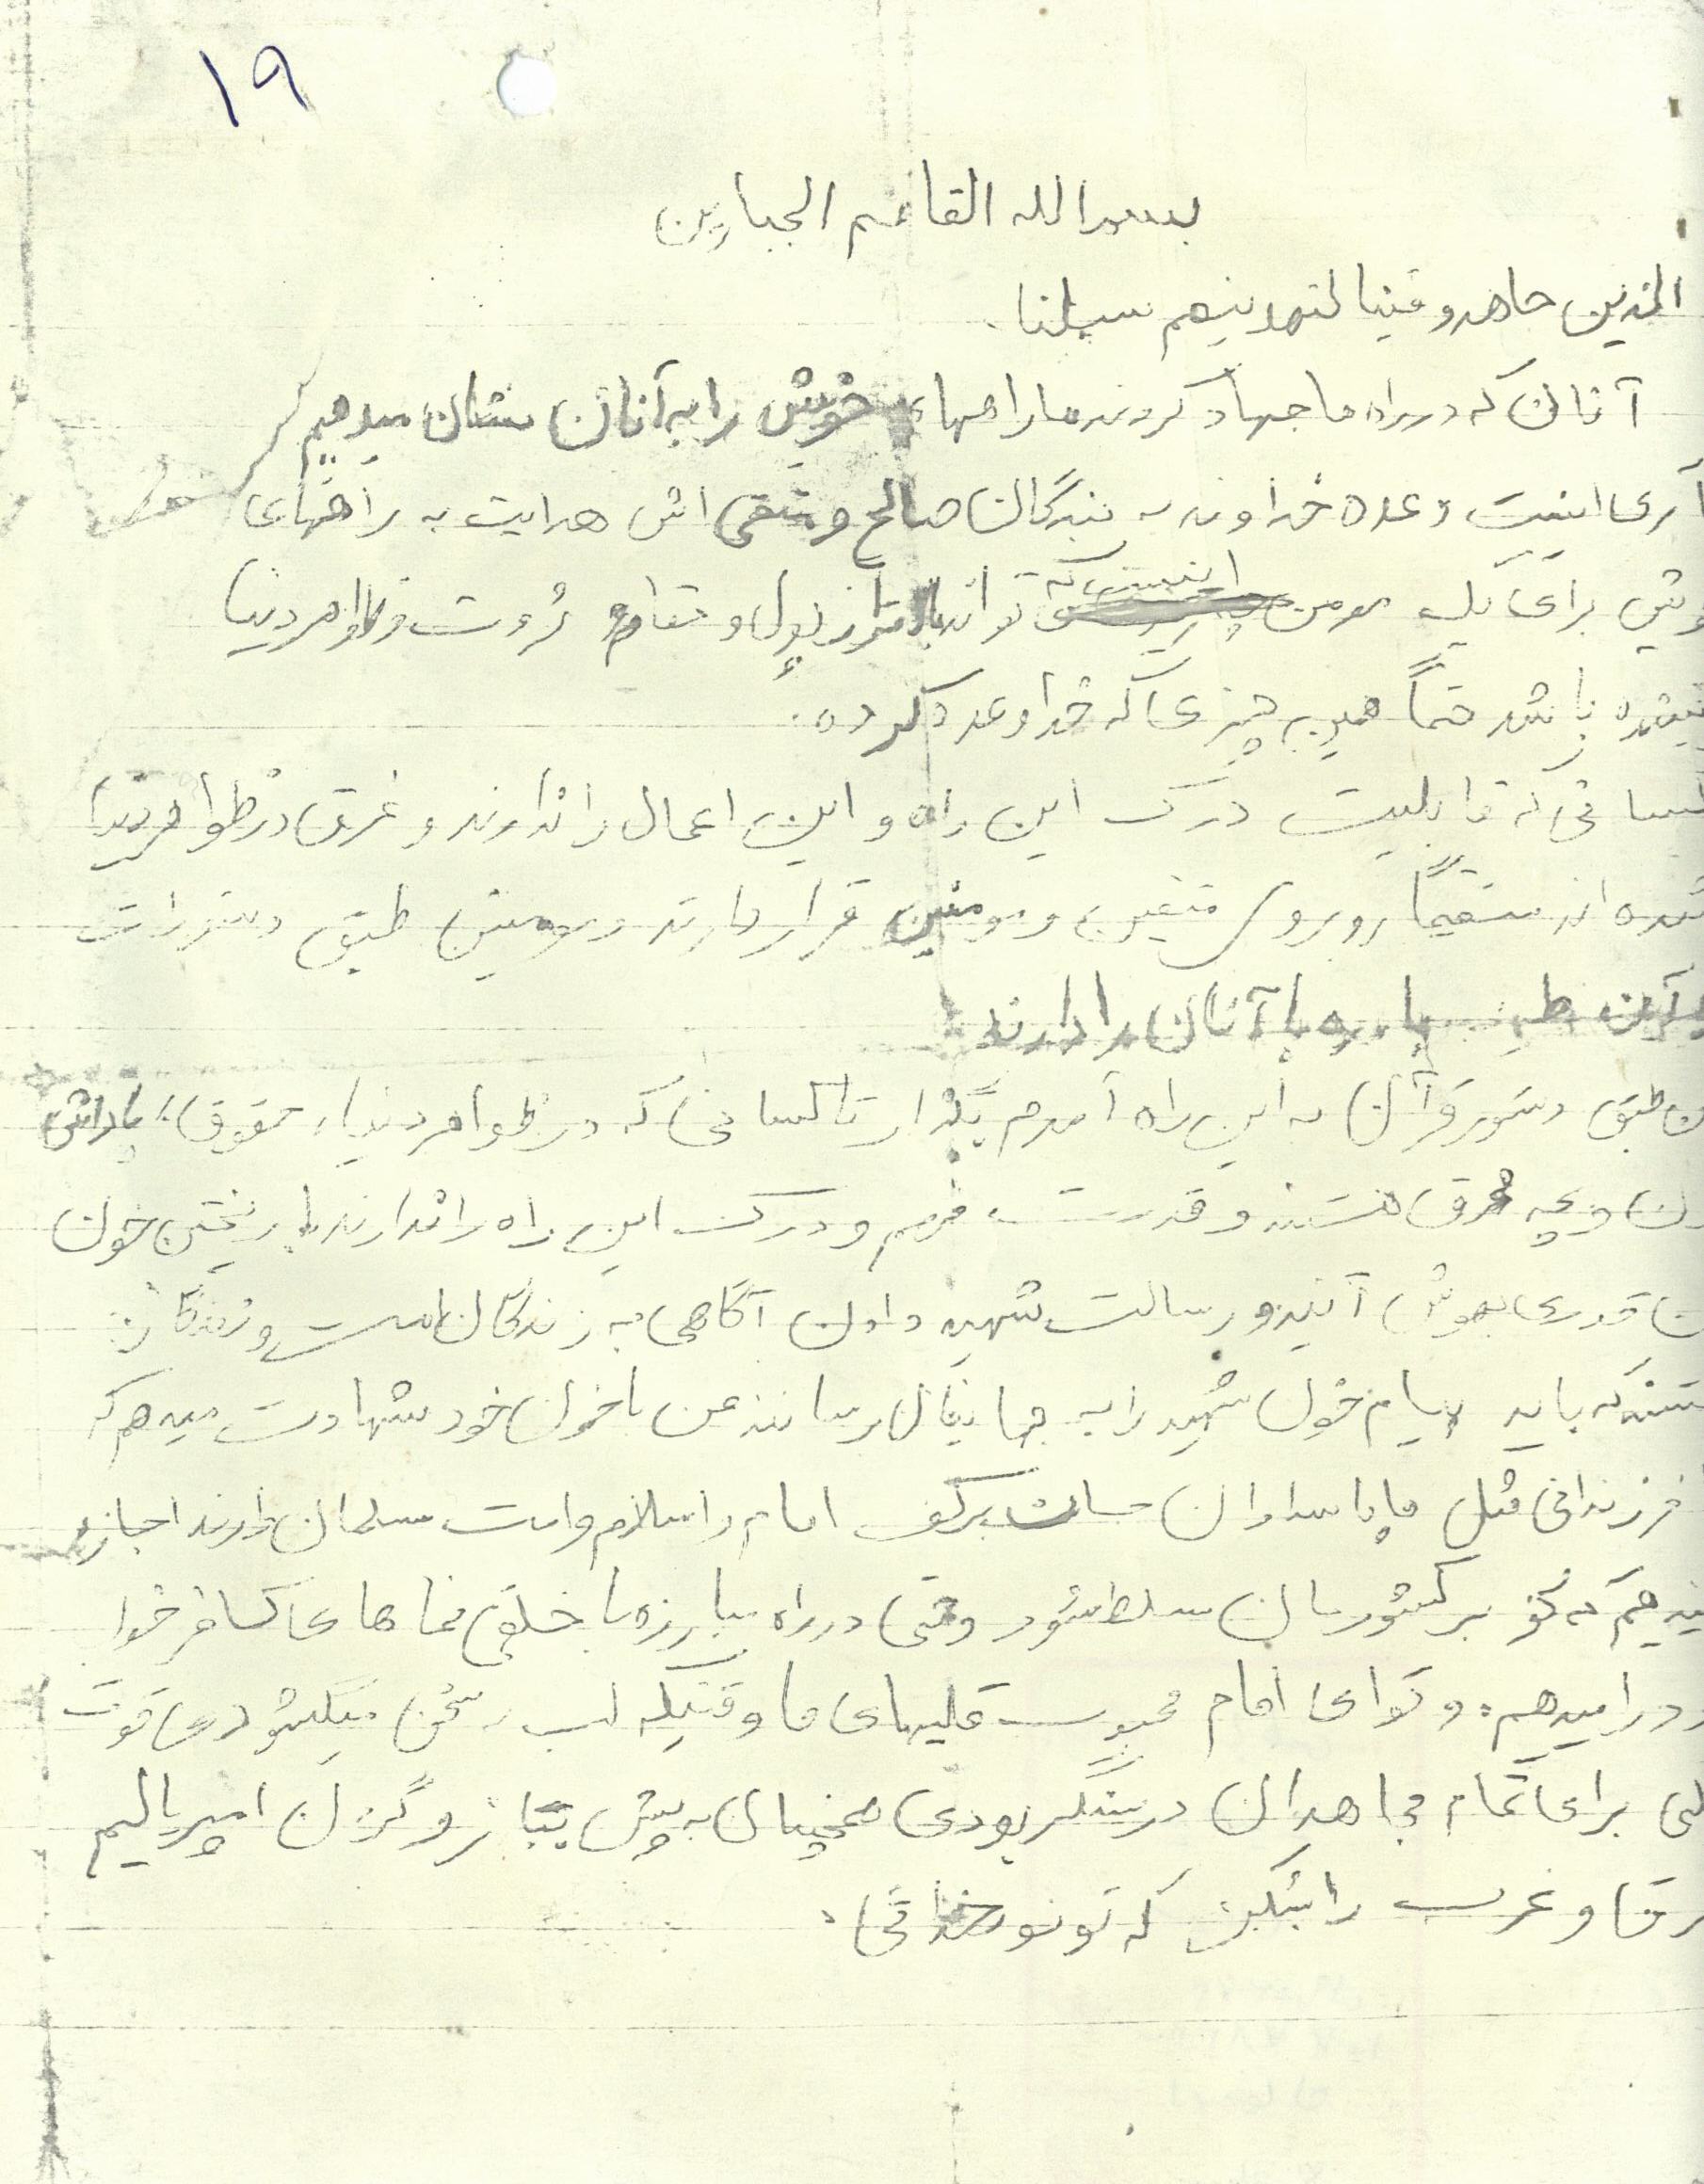 ۱۹
بسم الله القاصم الجبارین
الذین جاهدو فینا لنهدینهم سبلنا.
آنان که در راه ما جهاد کردند ما راههای خویش را به آنان نشان میدهیم
آری اینست وعده خداوند به بندگان صالح و متقی اش هدایت به راههای
برای یک مومن چیزی که تواند بالاتر از پول و مقام و ثروت و ظواهر دنیا
باشد حتماً همین چیزی که خدا وعده کرده.
کسانی که قابلیت درک این راه و این اعمال را ندارند و غرق در ظواهر دنیا
شده اند مستقیماً روبروی متقین و مومنین قرار دارند و مومنین طبق دستورات
با آنان را دارند
طبق دستور قرآن به این راه آمدم بگذار تا کسانی که در ظواهر دنیا، حقوق، پاداش
و بچه غرق هستند و قدرت فهم و درک این راه را ندارند با ریختن خون
قدری بهوش آیند و رسالت شهید دادن آگاهی به زندگان است و زندگان
که باید پیام خون شهید را به جهانیان رسانند من با خون خود شهادت میدهم که
فرزندانی مثل پاسداران جان برکف امام و اسلام و امت مسلمان دارند اجازه
که کفر بر کشورمان مسلط شود وقتی در راه مبارزه با خلقی نماهای کافر خوا
را میدهم. و تو ای امام محبوب قلبهای ما وقتیکه لب به سخن میگشودی قوت
برای تمام مجاهدان در سنگر بودی همچنان به پیش بتاز و گردن امپریالیسم
و غرب را بشکن که تو نور خدائی.